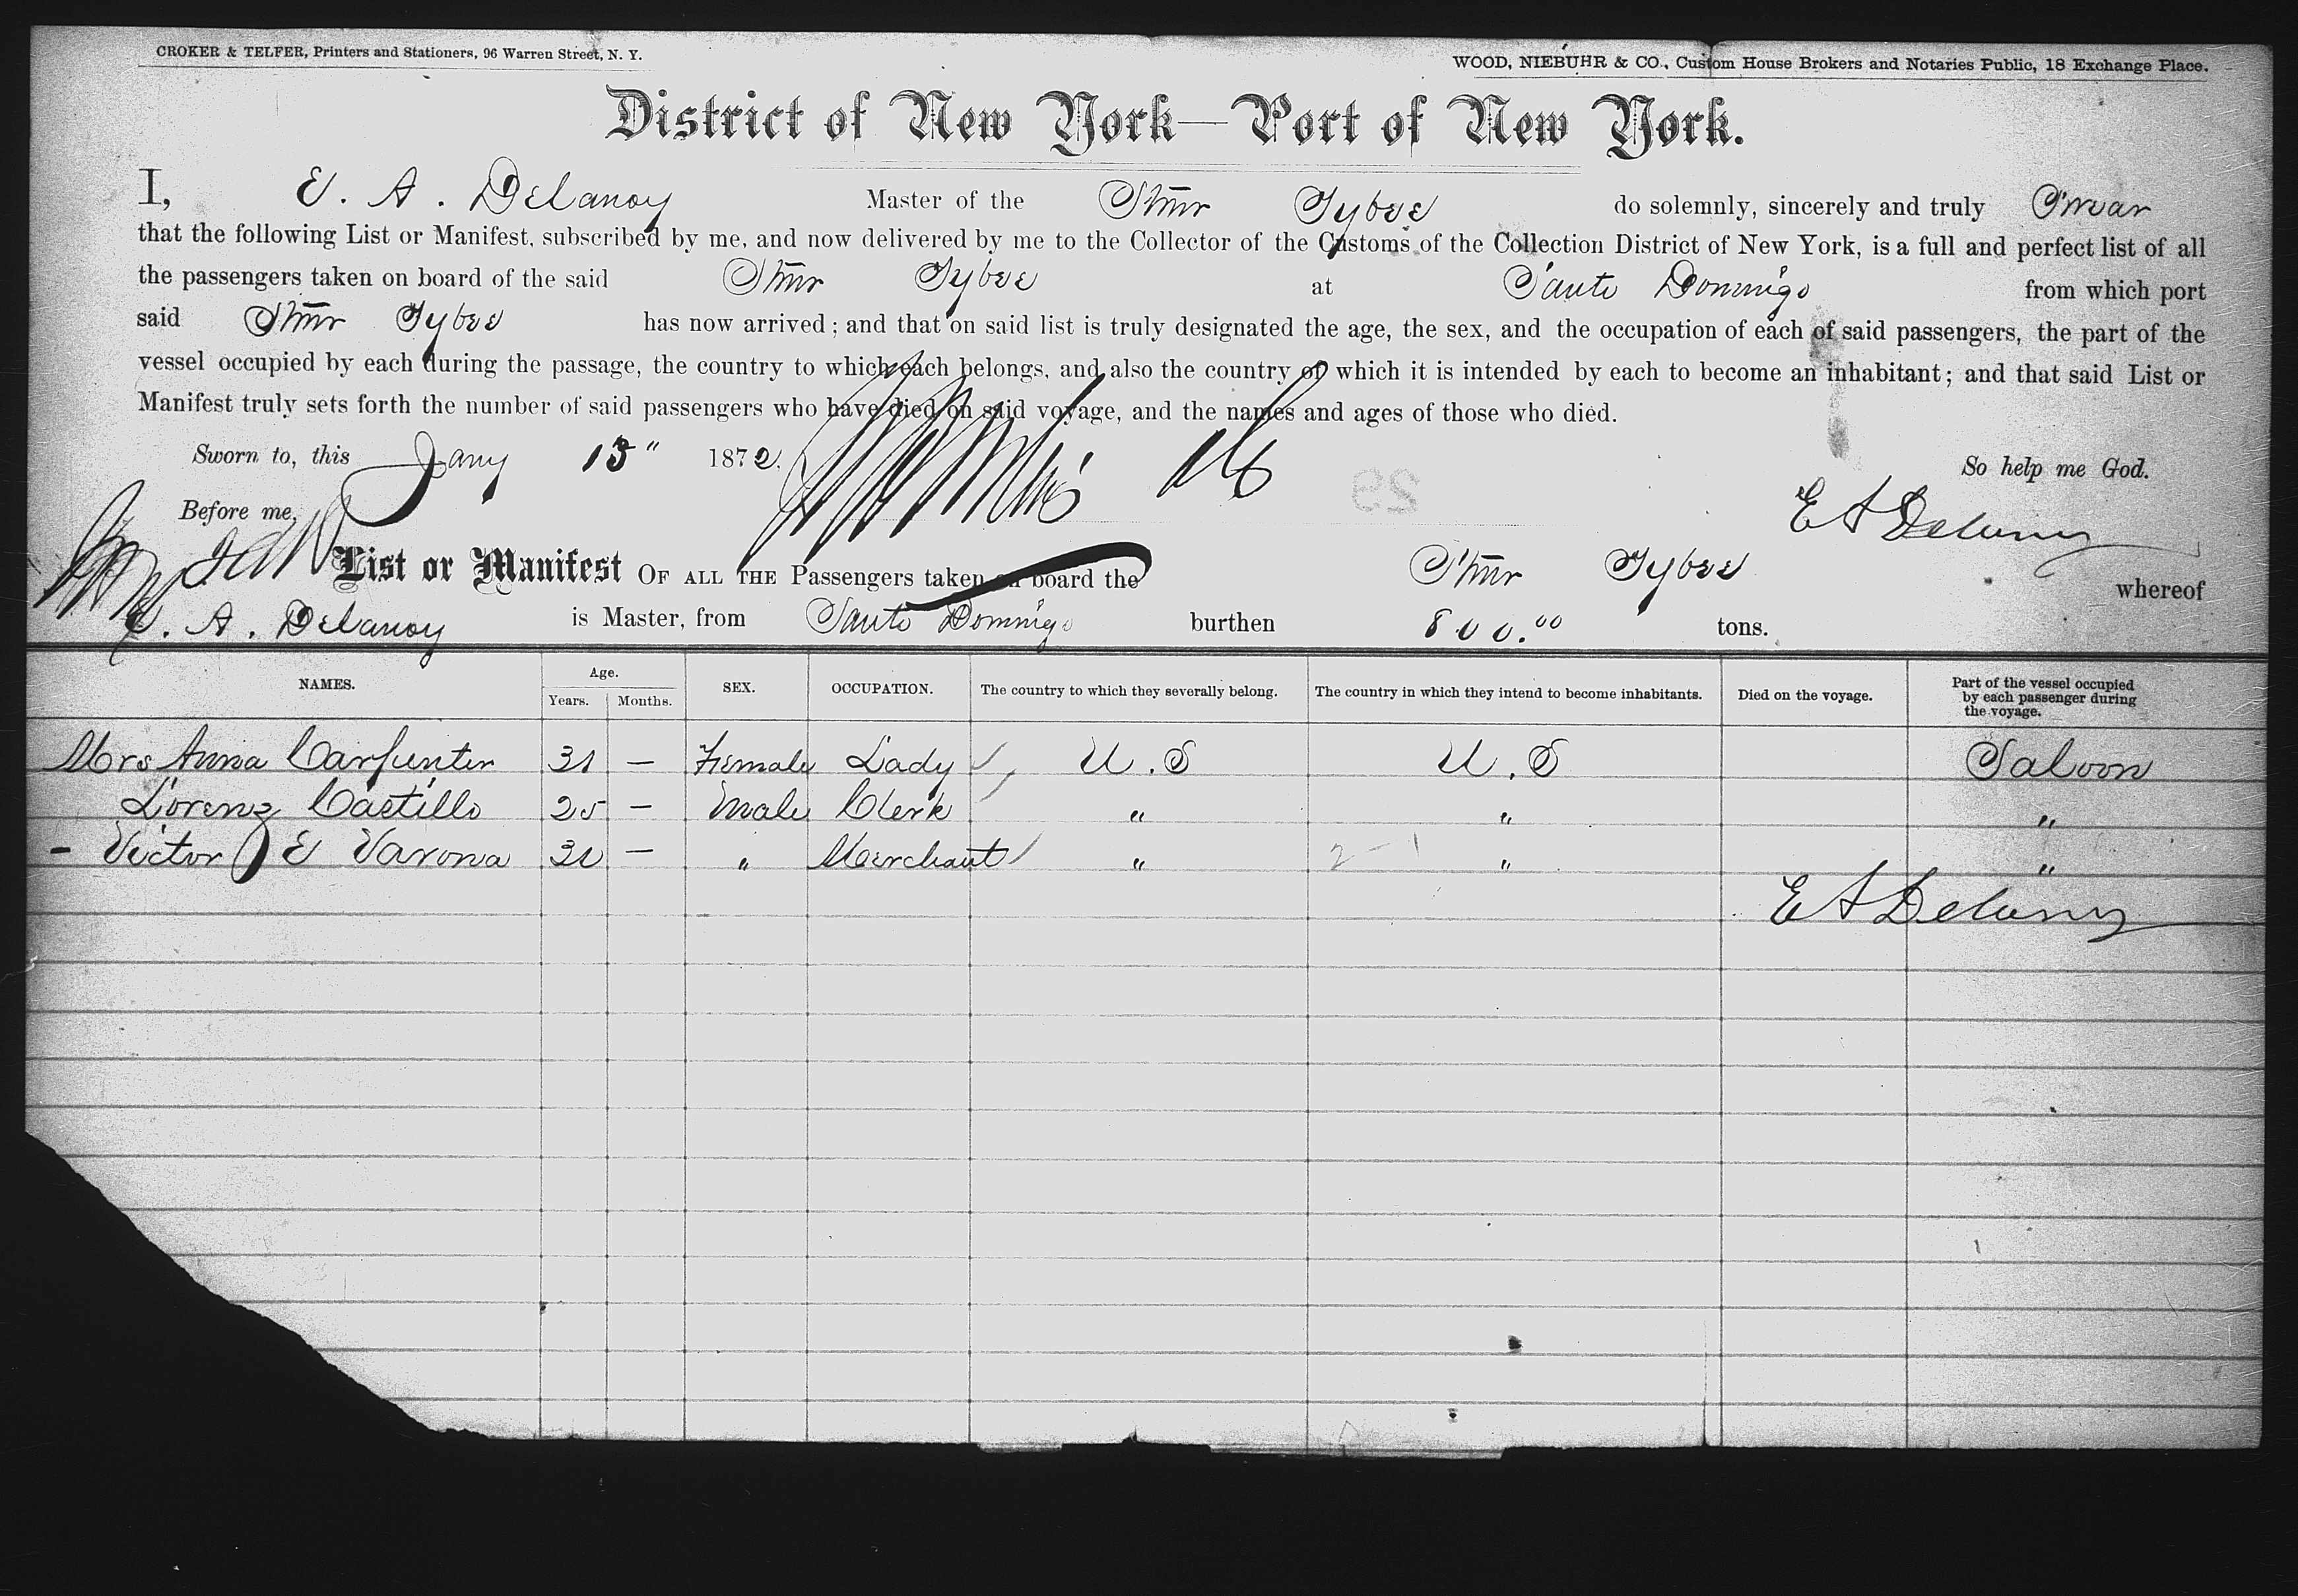 CROKER & TELFER, Printers and Stationers, 96 Warren Street, N. Y.
WOOD, NIEBUHR & CO., Custom House Brokers and Notaries Public, 18 Exchange Place.
District of New York—Port of New York.
I, E. A. Delanoy Master of the Stmr Tybee do solemnly, sincerely and truly Swear
that the following List or Manifest, subscribed by me, and now delivered by me to the Collector of the Customs of the Collection District of New York, is a full and perfect list of all
the passengers taken on board of the said Stmr Tybee at Santo Domingo from which port
said Stmr Tybee has now arrived; and that on said list is truly designated the age, the sex, and the occupation of each of said passengers, the part of the
vessel occupied by each during the passage, the country to which each belongs, and also the country of which it is intended by each to become an inhabitant; and that said List or
Manifest truly sets forth the number of said passengers who have died on said voyage, and the names and ages of those who died.
Sworn to, this Jany 13" 1872. So help me God.
29
Before me, E A Delanoy
List or Manifest OF ALL THE Passengers taken on board the Stmr Tybee whereof
E. A. Delanoy is Master, from Santo Domingo burthen 800.00 tons.
NAMES. Age. Years. Months. SEX. OCCUPATION. The country to which they severally belong. The country in which they intend to become inhabitants. Died on the voyage. Part of the vessel occupied by each passenger during the voyage.
Mrs Anna Carpenter 31 — Female Lady U.S U.S Saloon
Lorenz Castillo 25 — Male Clerk " " "
- Victor E Varona 30 — " Merchant " 2 - 1 " "
E A Delanoy